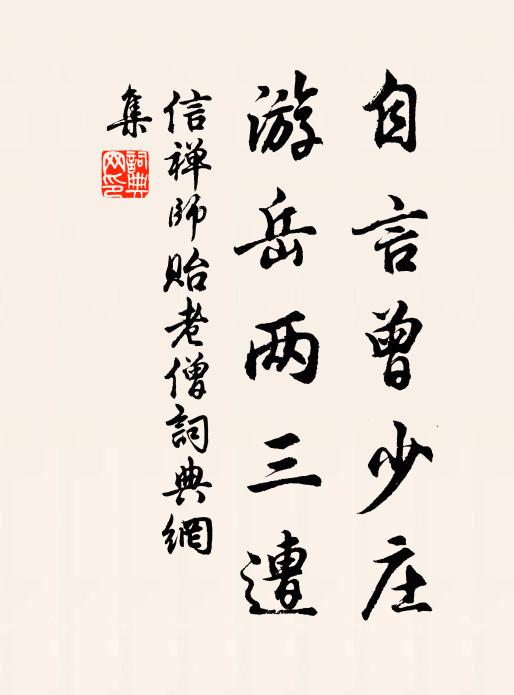 自言曾少庄
游岳两三遭
信禅師贻老僧詞典網
集
詞典網印